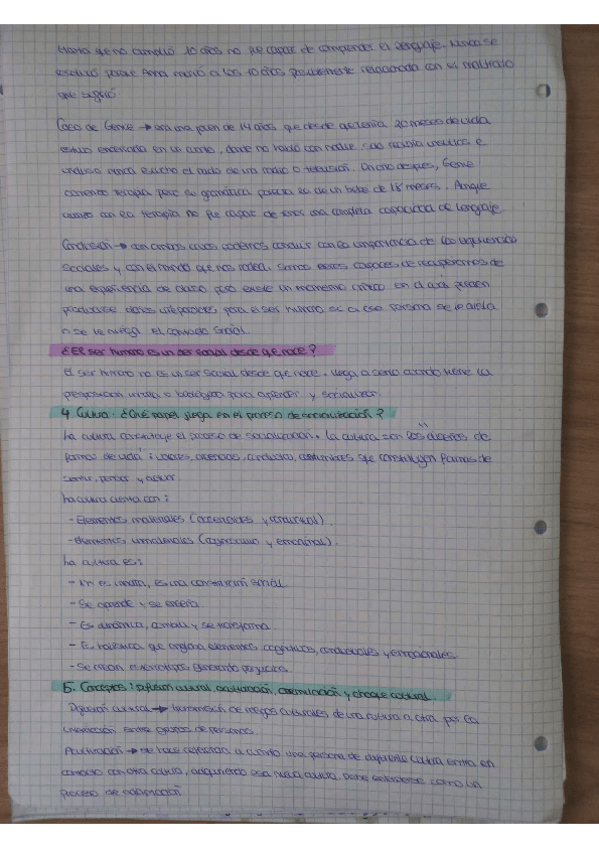 que no cumplió 10 años no fue capaz de comprender el lenguaje. Nunca se
resolvió porque Anna murió a los 10 años posiblemente relacionada con el maltrato
que sufrió
Caso de Genie → era una joven de 14 años que desde que tenía 20 meses de vida
estuvo encerrada en un cuarto, donde no habló con nadie, solo recibía insultos e
incluso nunca escuchó el ruido de una radio o televisión. Un año después, Genie
comenzó terapia pero su gramática parecía la de un bebé de 18 meses. Aunque
con la terapia no fue capaz de tener una completa capacidad de lenguaje
Conclusión → con ambos casos podemos concluir con la importancia de las experiencias
sociales y con el mundo que nos rodea. Somos seres capaces de recuperarnos de
una experiencia de pero existe un momento crítico en el cual pueden
producirse daños irreparables para el ser humano si a esa persona se le aisla
o se le niega el contacto social.
¿El ser humano es un ser social desde que nace?
El ser humano no es un ser social desde que nace. Llega a serlo cuando tiene la
predisposición innata o biológica para aprender y socializar.
4. Cultura. ¿Qué papel juega en el proceso de socialización?
La cultura el proceso de socialización. La cultura son los diseños de
formas de vida: valores, creencias, conducta, costumbres que constituyen formas de
sentir, pensar y actuar.
La cultura cuenta con:
- Elementos materiales ( y conductual).
- Elementos inmateriales (cognoscitivo y emocional).
La cultura es:
- No es innata, es una construcción social
- Se aprende y se enseña
- Es dinámica, cambia y se transforma
- Es holística que engloba elementos cognitivos, conductuales y emocionales.
- Se crean estereotipos generando prejuicios.
5. Conceptos: difusión cultural, aculturación, asimilación y choque cultural.
Difusión cultural → transmisión de rasgos culturales de una cultura a otra por la
interacción entre grupos de personas.
Aculturación → se hace referencia a cuando una persona de diferente cultura entra en
contacto con otra cultura, adquiriendo esa nueva cultura. Debe entenderse como un
proceso de adaptación